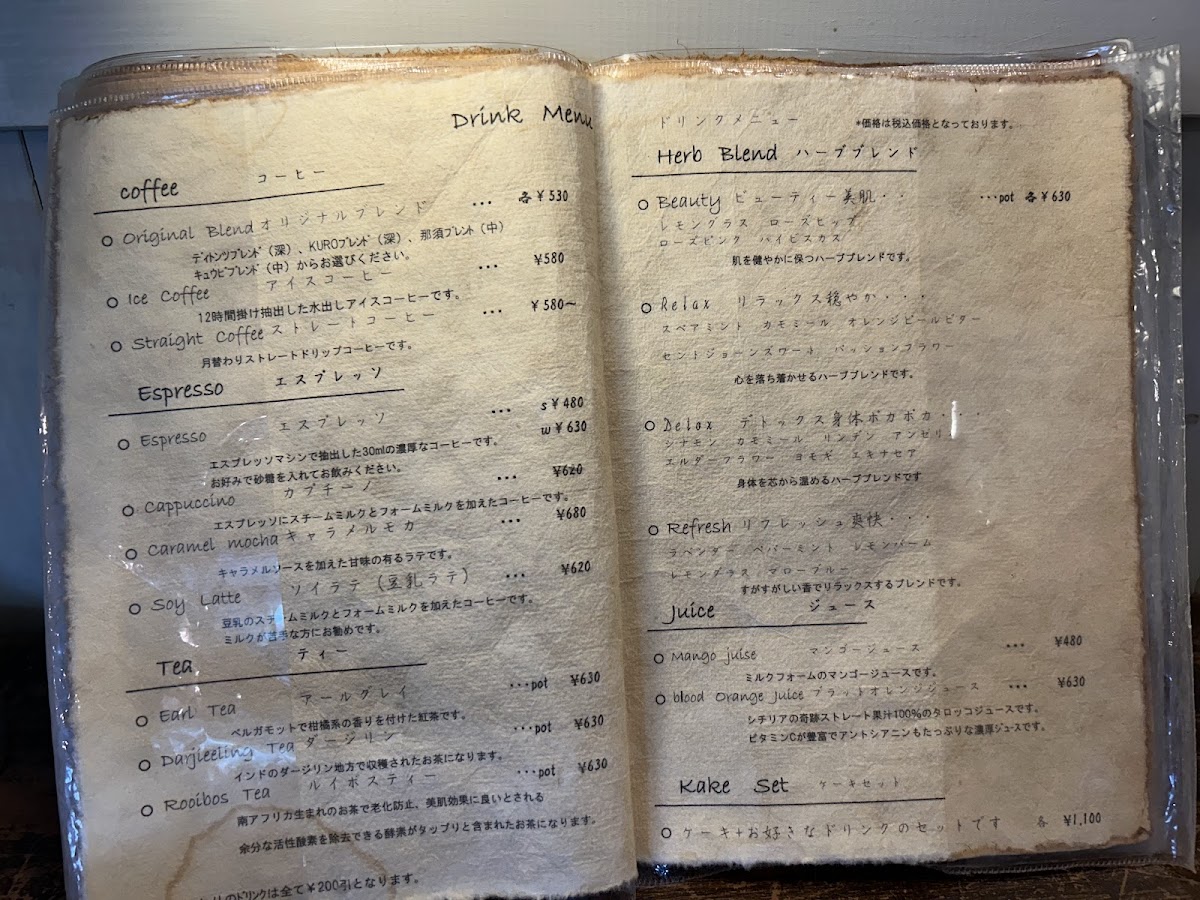 Drink Menu
coffee コーヒー
Original Blend オリジナルブレンド ... 各¥530
ﾃﾞｨﾄﾝﾂﾌﾞﾚﾝﾄﾞ（深）、KUROﾌﾞﾚﾝﾄﾞ（深）、那須ﾌﾞﾚﾝﾄ（中）
ｷｭｳﾋﾞﾌﾞﾚﾝﾄﾞ（中）からお選びください。
Ice Coffee アイスコーヒー ... ¥580
12時間掛け抽出した水出しアイスコーヒーです。
Straight Coffee ストレートコーヒー ... ¥580～
月替わりストレートドリップコーヒーです。
Espresso エスプレッソ
Espresso エスプレッソ ... s¥480
w¥630
エスプレッソマシンで抽出した30mlの濃厚なコーヒーです。
お好みで砂糖を入れてお飲みください。
Cappuccino カプチーノ ... ¥620
エスプレッソにスチームミルクとフォームミルクを加えたコーヒーです。
Caramel mocha キャラメルモカ ... ¥680
キャラメルソースを加えた甘味の有るラテです。
Soy Latte ソイラテ（豆乳ラテ） ... ¥620
豆乳のスチームミルクとフォームミルクを加えたコーヒーです。
ミルクが苦手な方にお勧めです。
Tea ティー
Earl Tea アールグレイ ...pot ¥630
ベルガモットで柑橘系の香りを付けた紅茶です。
Darjieeling Tea ダージリン ...pot ¥630
インドのダージリン地方で収穫されたお茶になります。
Rooibos Tea ルイボスティー ...pot ¥630
南アフリカ生まれのお茶で老化防止、美肌効果に良いとされる
余分な活性酸素を除去できる酵素がタップリと含まれたお茶になります。
りのﾄﾞﾘﾝｸは全て¥200引となります。
ドリンクメニュー *価格は税込価格となっております。
Herb Blend ハーブブレンド
Beauty ビューティー美肌・・ ...pot 各¥630
レモングラス ローズヒップ
ローズピンク ハイビスカス
肌を健やかに保つハーブブレンドです。
Relax リラックス穏やか・・・
スペアミント カモミール オレンジピールビター
セントジョーンズワート パッションフラワー
心を落ち着かせるハーブブレンドです。
Delox デトックス身体ポカポカ・・・
シナモン カモミール リンデン アンゼリカ
エルダーフラワー ヨモギ エキナセア
身体を芯から温めるハーブブレンドです
Refresh リフレッシュ爽快・・・
ラベンダー ペパーミント レモンバーム
レモングラス マローブルー
すがすがしい香でリラックスするブレンドです。
Juice ジュース
Mango juise マンゴージュース ... ¥480
ミルクフォームのマンゴージュースです。
blood Orange juice ブラッドオレンジジュース ... ¥630
シチリアの奇跡ストレート果汁100%のタロッコジュースです。
ビタミンCが豊富でアントシアニンもたっぷりな濃厚ｼﾞｭｰｽです。
Kake Set ケーキセット
ケーキ+お好きなドリンクのセットです 各 ¥1,100